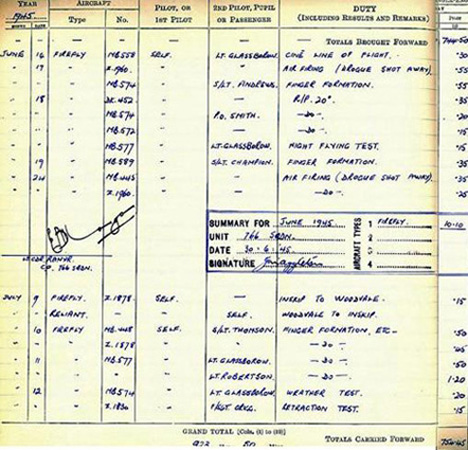 YEAR AIRCRAFT PILOT, OR 1ST PILOT 2ND PILOT, PUPIL OR PASSENGER DUTY (INCLUDING RESULTS AND REMARKS)
1945 Type No.
— — — TOTALS BROUGHT FORWARD
JUNE 16 FIREFLY MB558 SELF. LT. GLASSBOROW. CINÉ LINE OF FLIGHT. ·30
" 17 " Z.1960. " — AIR FIRING (DROGUE SHOT AWAY) ·55
" " " MB574 " S/LT. ANDREWS. FINGER FORMATION. ·55
" 18 " DK.452 " — R/P. 20° ·30
" " " MB574 " P.O. SMITH. —DO—
" " " MB572 " — —DO—
" " " MB577 " LT. GLASSBOROW. NIGHT FLYING TEST. ·15
" 19 " MB589 " S/LT. CHAMPION. FINGER FORMATION. ·35
" 24 " MB445 " — AIR FIRING (DROGUE SHOT AWAY) ·35
" " " Z.1960. " — —DO—
SUMMARY FOR JUNE 1945 1 FIREFLY. 10·10
UNIT 766 SQDN. 2
DATE 30·6·45. 3
SIGNATURE 4
AIRCRAFT TYPES
LT CDR RANVR.
C.O. 766 SQDN.
JULY 9 FIREFLY. Z.1878 SELF. — INSKIP TO WOODVALE. ·15
" " RELIANT. — — SELF. WOODVALE TO INSKIP.
" 10 FIREFLY MB.448 SELF. S/LT. THOMSON. FINGER FORMATION, ETC— ·50
" " " Z.1878 " — —DO—
" 11 " MB577 " LT. GLASSBOROW. —DO— ·50
" " " " " LT. ROBERTSON. —DO— 1·20
" 12 " MB574 " LT. GLASSBOROW. WEATHER TEST. ·20
" " " Z.1830 " RETRACTION TEST. ·15
GRAND TOTAL [Cols. (1) to (10)]
TOTALS CARRIED FORWARD